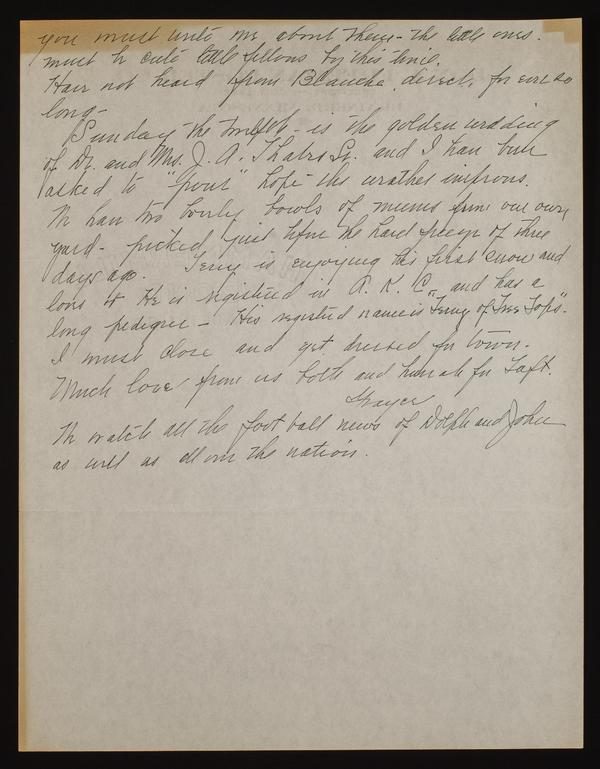 you must write me about them - the little ones.
must be cute little fellows by this time.
Have not heard from Blanche direct, for ever so
long -
Sunday the twelfth - is the golden wedding
of Dr. and Mrs. J. A. Thabes Sr. and I have been
asked to "pour" hope the weather improves.
We have two lovely bowls of mums from our own
yard - picked just before the hard freeze of three
days ago. Terry is enjoying this first snow and
loves it He is registered in A. K. C. and has a
long pedigree - His registered name is "Terry of Tree Tops".
I must close and get dressed for town.
Much love from us both and hurrah for Taft.
Grayce
We watch all the foot ball news of Dolph and John
as well as all over the nation.